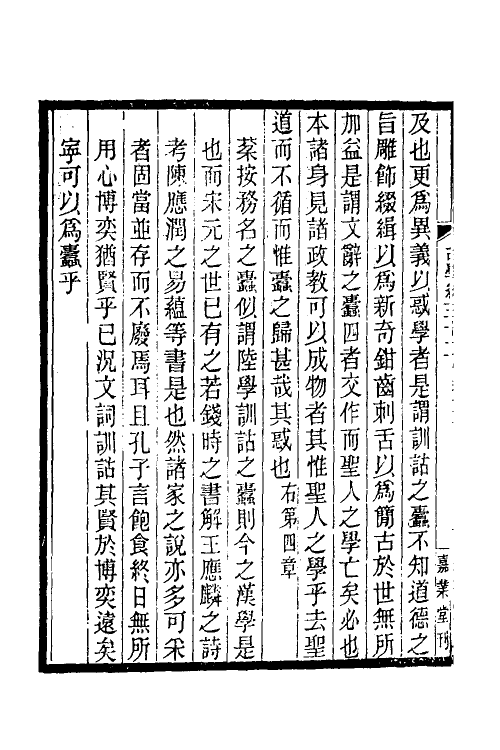 及也更爲異義以惑學者是謂訓詁之蠹不知道德之
旨雕飾綴緝以爲新奇鉗齒刺舌以爲簡古於世無所
加益是謂文辭之蠹四者交作而聖人之學亡矣必也
本諸身見諸政教可以成物者其惟聖人之學乎去聖
道而不循而惟蠹之歸甚哉其惑也 右第四章
棻按務名之蠹似謂陸學訓詁之蠹則今之漢學是
也而宋元之世已有之若錢時之書解王應麟之詩
考陳應潤之易蘊等書是也然諸家之說亦多可采
者固當並存而不廢焉耳且孔子言飽食終日無所
用心博奕猶賢乎已況文詞訓詁其賢於博奕遠矣
寧可以爲蠹乎
嘉業堂刊